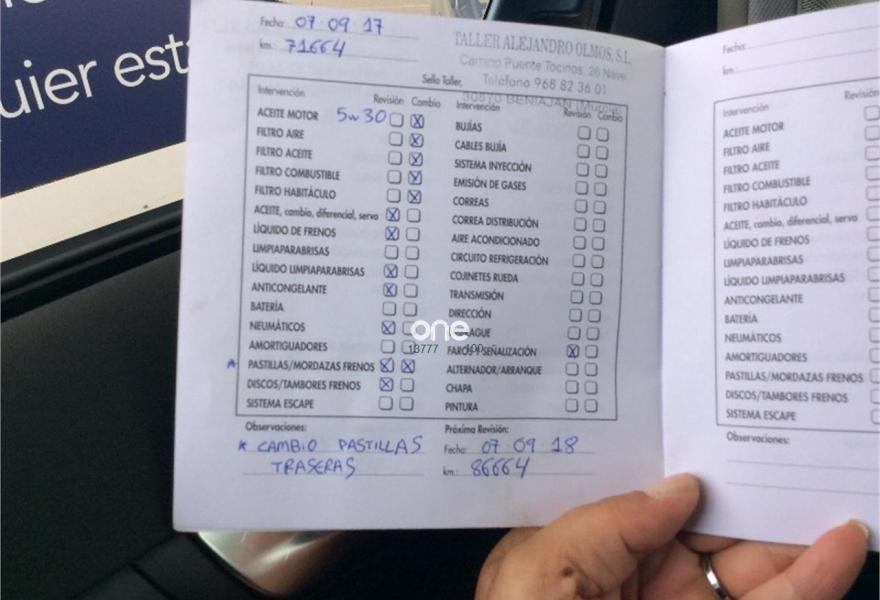 uier est
Fecha: 07 09 17
km.: 71664
TALLER ALEJANDRO OLMOS, S.L.
Camino Puente Tocinos, 26 Nave
Teléfono 968 82 36 01
30570 BENIAJAN (Murcia)
Sello Taller,
Intervención Revisión Cambio
ACEITE MOTOR 5w30
FILTRO AIRE
FILTRO ACEITE
FILTRO COMBUSTIBLE
FILTRO HABITÁCULO
ACEITE, cambio, diferencial, servo
LÍQUIDO DE FRENOS
LIMPIAPARABRISAS
LÍQUIDO LIMPIAPARABRISAS
ANTICONGELANTE
BATERÍA
NEUMÁTICOS
AMORTIGUADORES
* PASTILLAS/MORDAZAS FRENOS
DISCOS/TAMBORES FRENOS
SISTEMA ESCAPE
Intervención Revisión Cambio
BUJÍAS
CABLES BUJÍA
SISTEMA INYECCIÓN
EMISIÓN DE GASES
CORREAS
CORREA DISTRIBUCIÓN
AIRE ACONDICIONADO
CIRCUITO REFRIGERACIÓN
COJINETES RUEDA
TRANSMISIÓN
DIRECCIÓN
one
13777
FAROS Y SEÑALIZACIÓN
ALTERNADOR/ARRANQUE
CHAPA
PINTURA
Observaciones:
* CAMBIO PASTILLAS
TRASERAS
Próxima Revisión:
Fecha: 07 09 18
km.: 86664
Fecha:
km.:
Intervención Revisión
ACEITE MOTOR
FILTRO AIRE
FILTRO ACEITE
FILTRO COMBUSTIBLE
FILTRO HABITÁCULO
ACEITE, cambio, diferencial, servo
LÍQUIDO DE FRENOS
LIMPIAPARABRISAS
LÍQUIDO LIMPIAPARABRISAS
ANTICONGELANTE
BATERÍA
NEUMÁTICOS
AMORTIGUADORES
PASTILLAS/MORDAZAS FRENOS
DISCOS/TAMBORES FRENOS
SISTEMA ESCAPE
Observaciones: